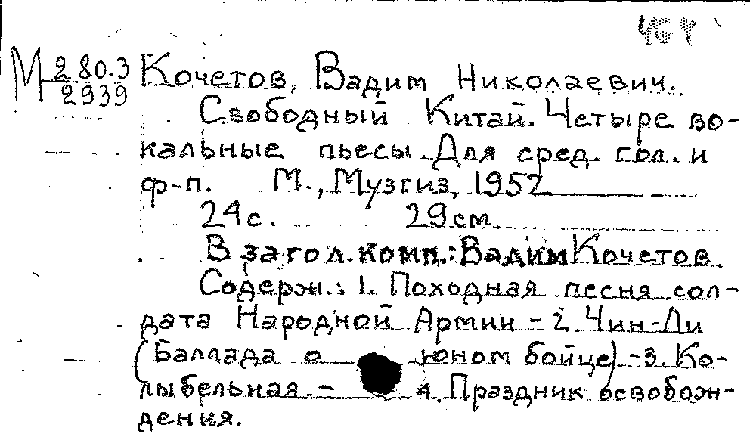 М 280.3 Кочетов, Вадим Николаевич.
2939
Свободный Китай. Четыре во-
кальные пьесы. Для сред. гол. и
ф-п. М., Музгиз, 1952
24 с. 29 см.
В загол. комп.: Вадим Кочетов.
Содерж.: 1. Походная песня сол-
дата Народной Армии - 2. Чин-Ли
(Баллада о юном бойце) - 3. Ко-
лыбельная - 4. Праздник освобож-
дения.